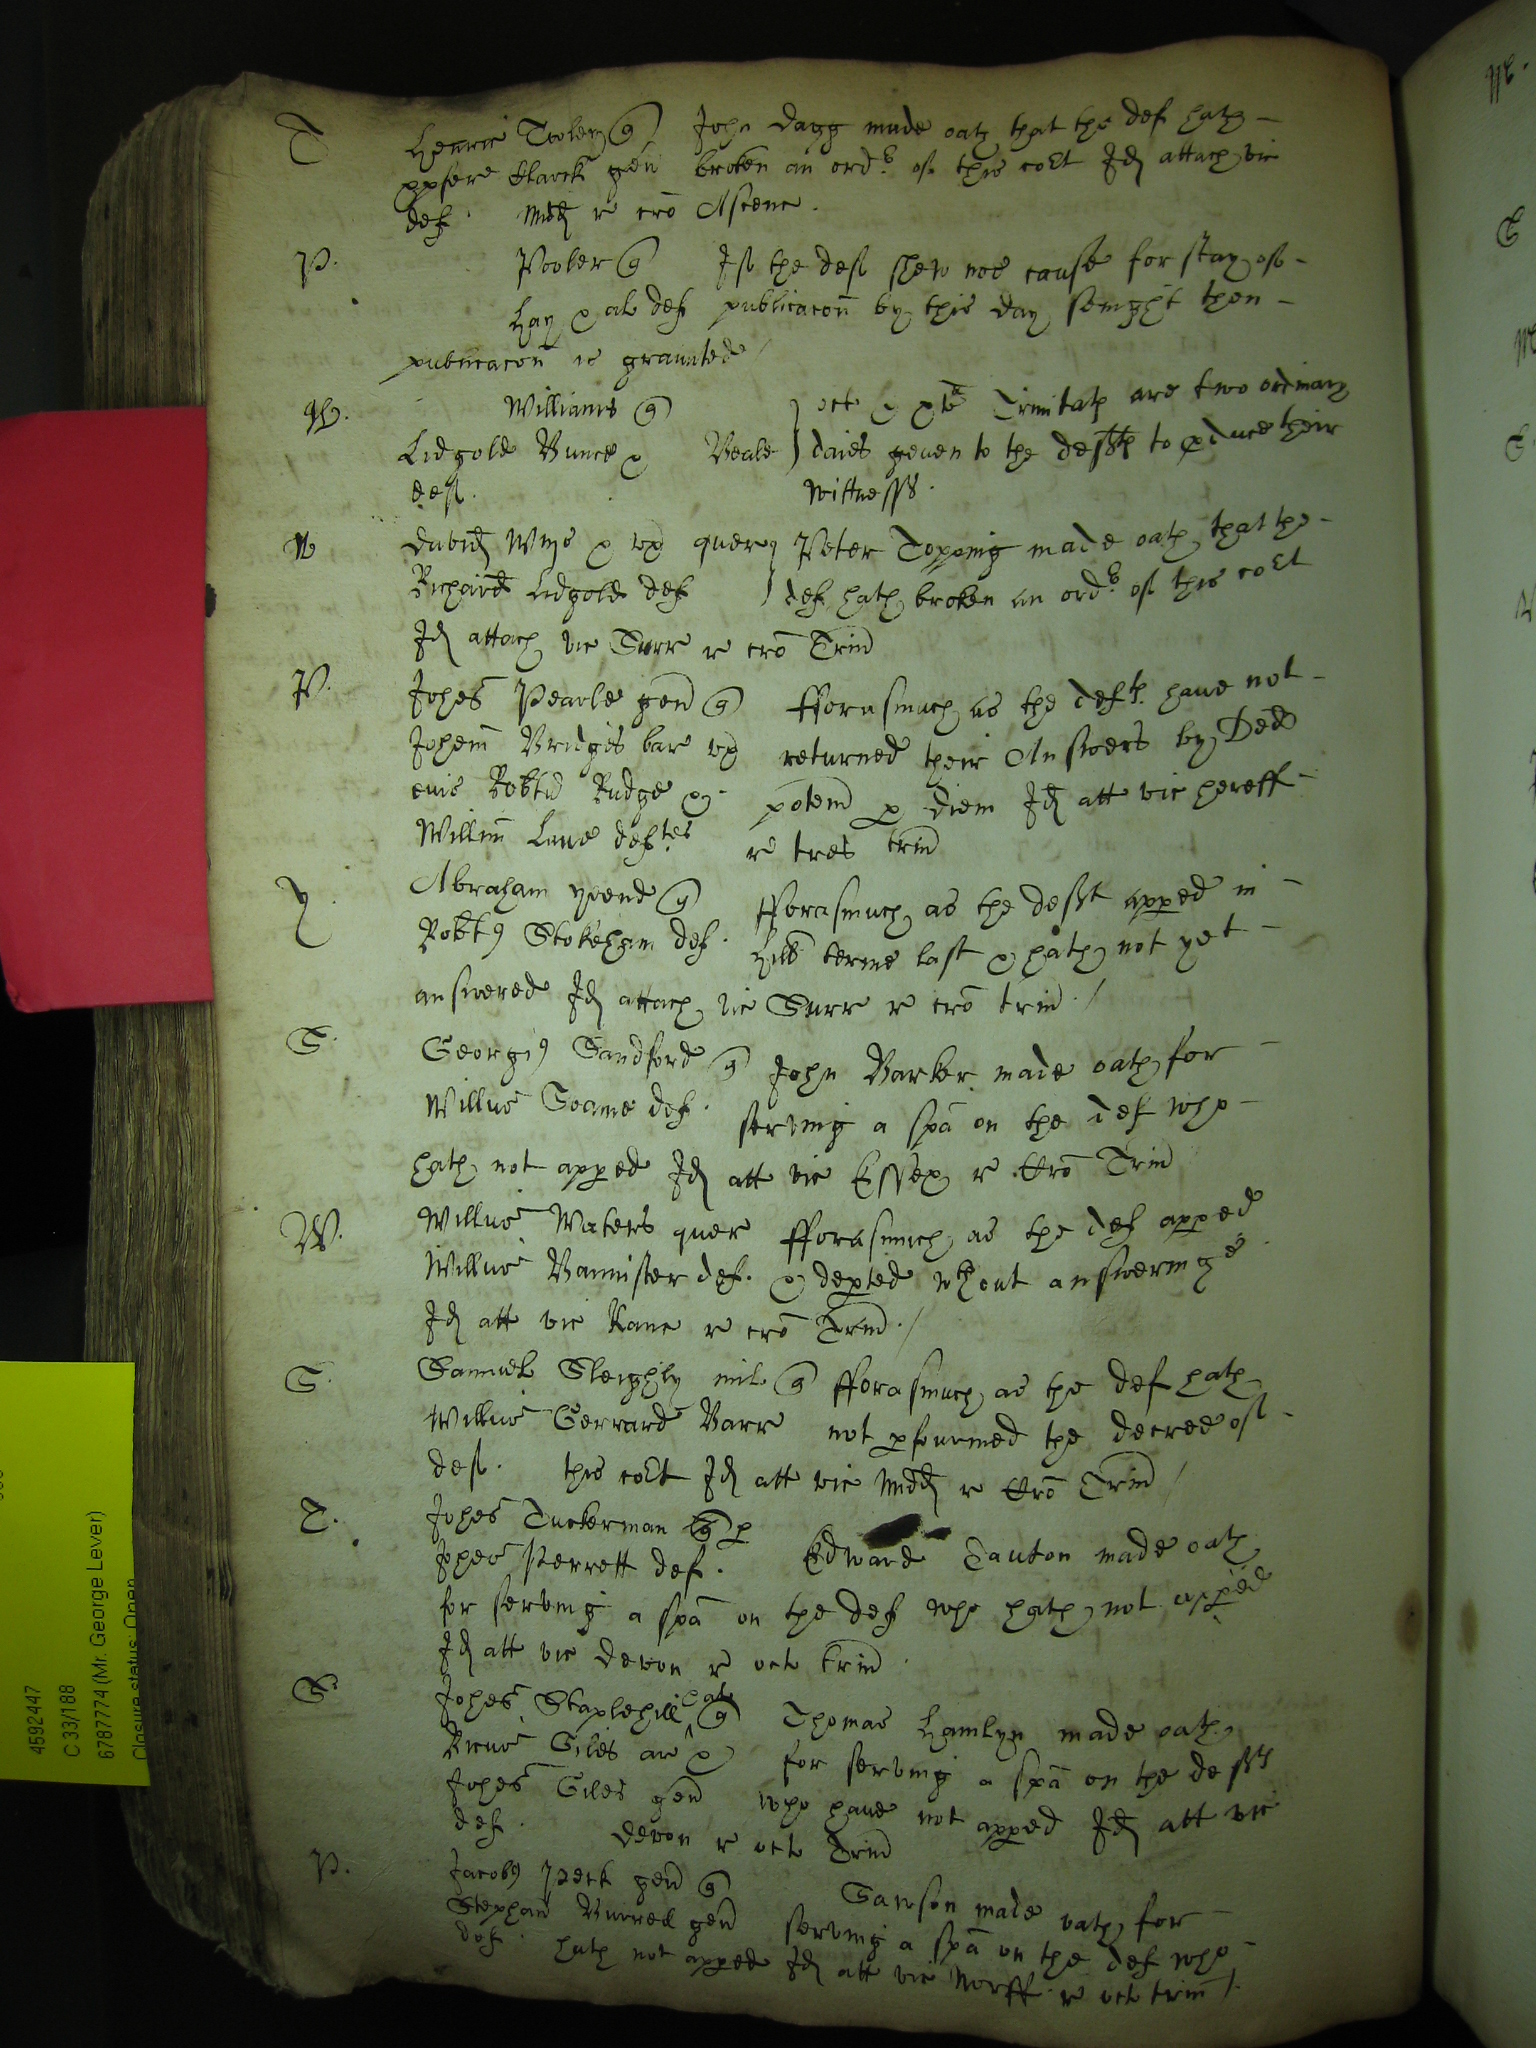 T Henric Tooley q John Dagg made oath that the def hath
xpofere Clarck gen broken an ordr of this co:rt Id attach vic
def. Midd r cro Ascenc.
P. Pooler q If the def shew noe cause for stay of
Hay & al def publicacon by this day senight then
publicacon is graunted /
W. Williams q oct & xva Trinitat are two ordinary
Lidgold Bunce & Beale daies geuen to the defts to pduce their
def. wittnesses.
W David Wije & vx quer Peter Topping made oath that the
Richard Lidgold def def hath broken an ordr of this co:rt
Id attach vic Surr r cro Trin
P. Johes Pearle gen q fforasmuch as the defts. haue not
Johem Bridgis bar vx returned their Answers by Ded
eius Robtu Rudge & potem p diem Id att vic hereff
Willm Lane deftes r tres trin
Y. Abraham yoend q fforasmuch as the deft apped in
Robtus Stokeham def. Hill terme last & hath not yet
answered Id attach vic Surr r cro trin. /
S. Georgius Sandford q John Barker made oath for
Willus Soame def. serving a spa on the def who
hath not apped Id att vic Essex r Cro Trin
W. Willus Waters quer fforasmuch as the def apped
Willus Bannister def. & depted wthout answeringe
Id att vic Kanc r cro Trin. /
S. Samuel Sleighly mil q fforasmuch as the def hath
Willus Gerrard Barr not pfourmed the decree of
def. this co:rt Id att vic Midd r Cro Trin /
T. Johes Tuckerman q p Edward Tauton made oath
Johes Perrett def. for serving a spa on the def who hath not apped
Id att vic devon r octo trin.
S. Johes Staplehill q Thomas Hamlyn made oath
Ricus Giles ar & for serving a spa on the defts
Johes Giles gen who haue not apped Id att vic
def. devon r octo Trin
P. Jacobus Peck gen q Sawson made oath for
Stephan Burrell gen serving a spa on the def who
def. hath not apped Id att vic Norff. r octo trin /.
4592447
C 33/188
6787774 (Mr. George Lever)
Closure status: Open